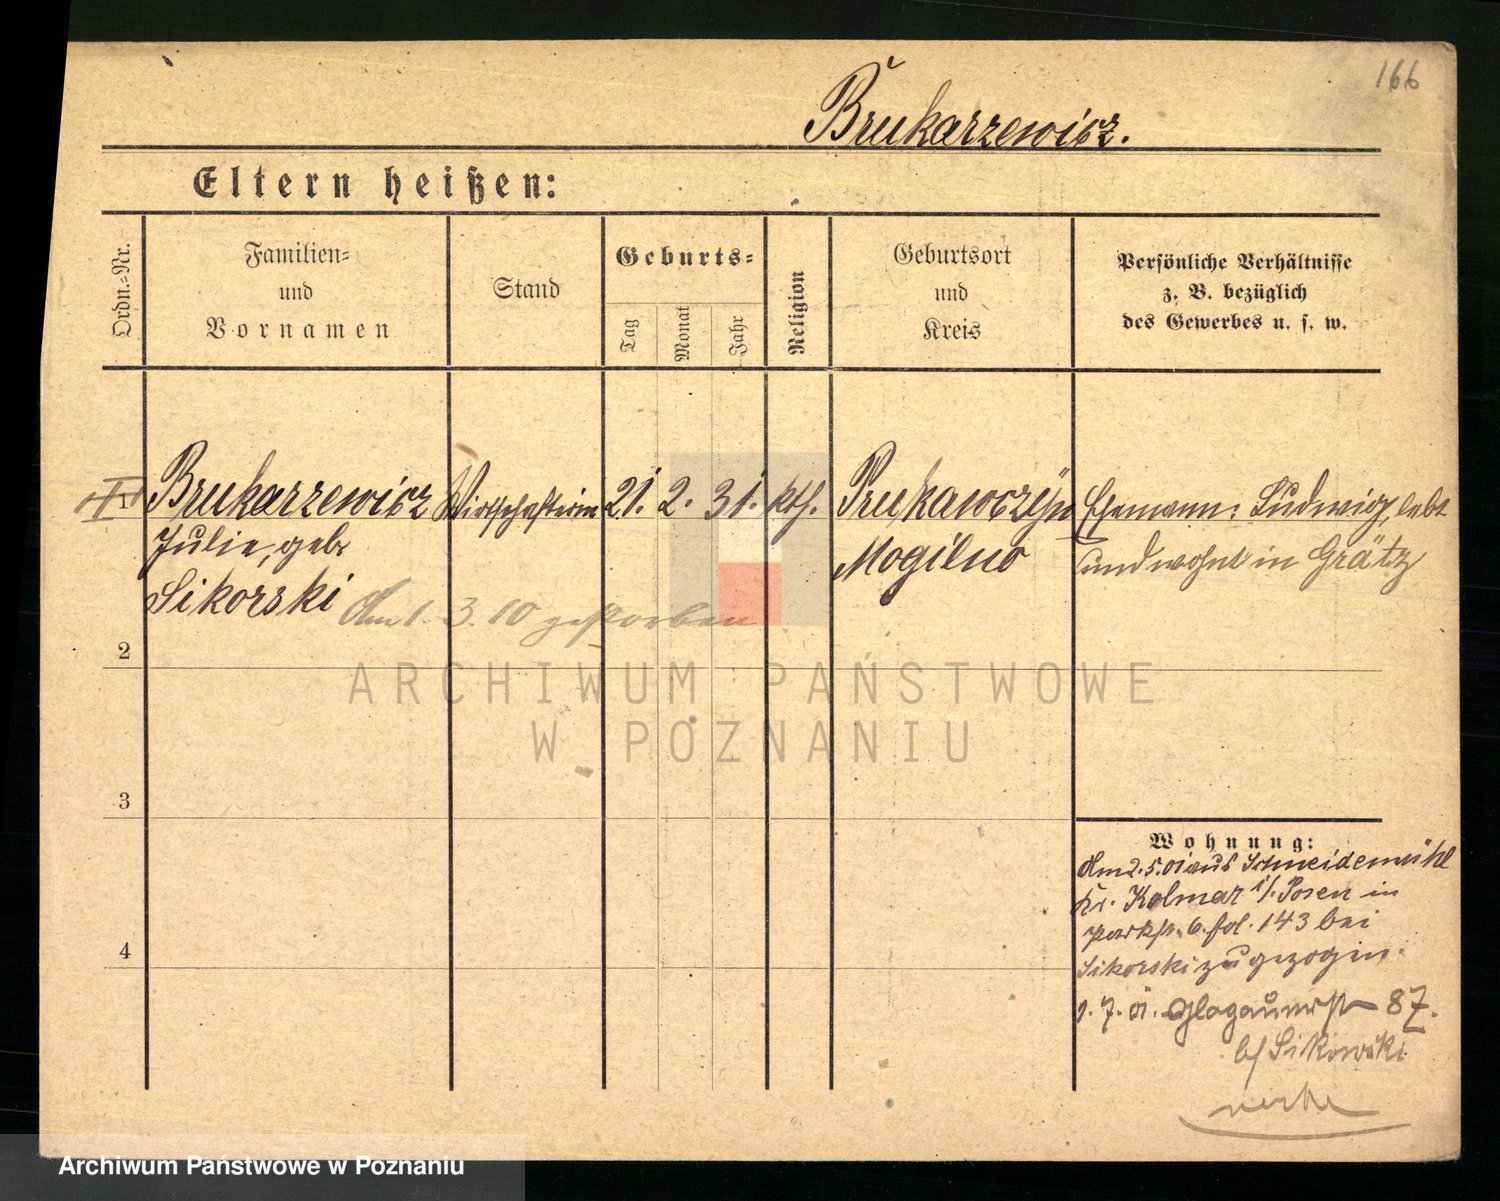 166
Brukarzewicz.
Eltern heißen:
Ordn.-Nr.
Familien-
und
Vornamen
Stand
Geburts-
Tag
Monat
Jahr
Religion
Geburtsort
und
Kreis
Persönliche Verhältnisse
z. B. bezüglich
des Gewerbes u. s. w.
1
Brukarzewicz Wirthschafterin 21. 2. 31. kth.
Julie, geb.
Sikorski
Am 1. 3. 10 gestorben
Mogilno
Ehemann: Ludwig, lebt
und wohnt in Grätz
2
3
4
Wohnung:
Am 2. 5. 01 aus Schneidemühl
Kr. Kolmar i/. Posen in
Parkstr. 6. fol. 143 bei
Sikorski zugezogen.
1. 7. 01. Glogauerstr 87.
b/ Sikorski
ARCHIWUM PAŃSTWOWE
W POZNANIU
Archiwum Państwowe w Poznaniu